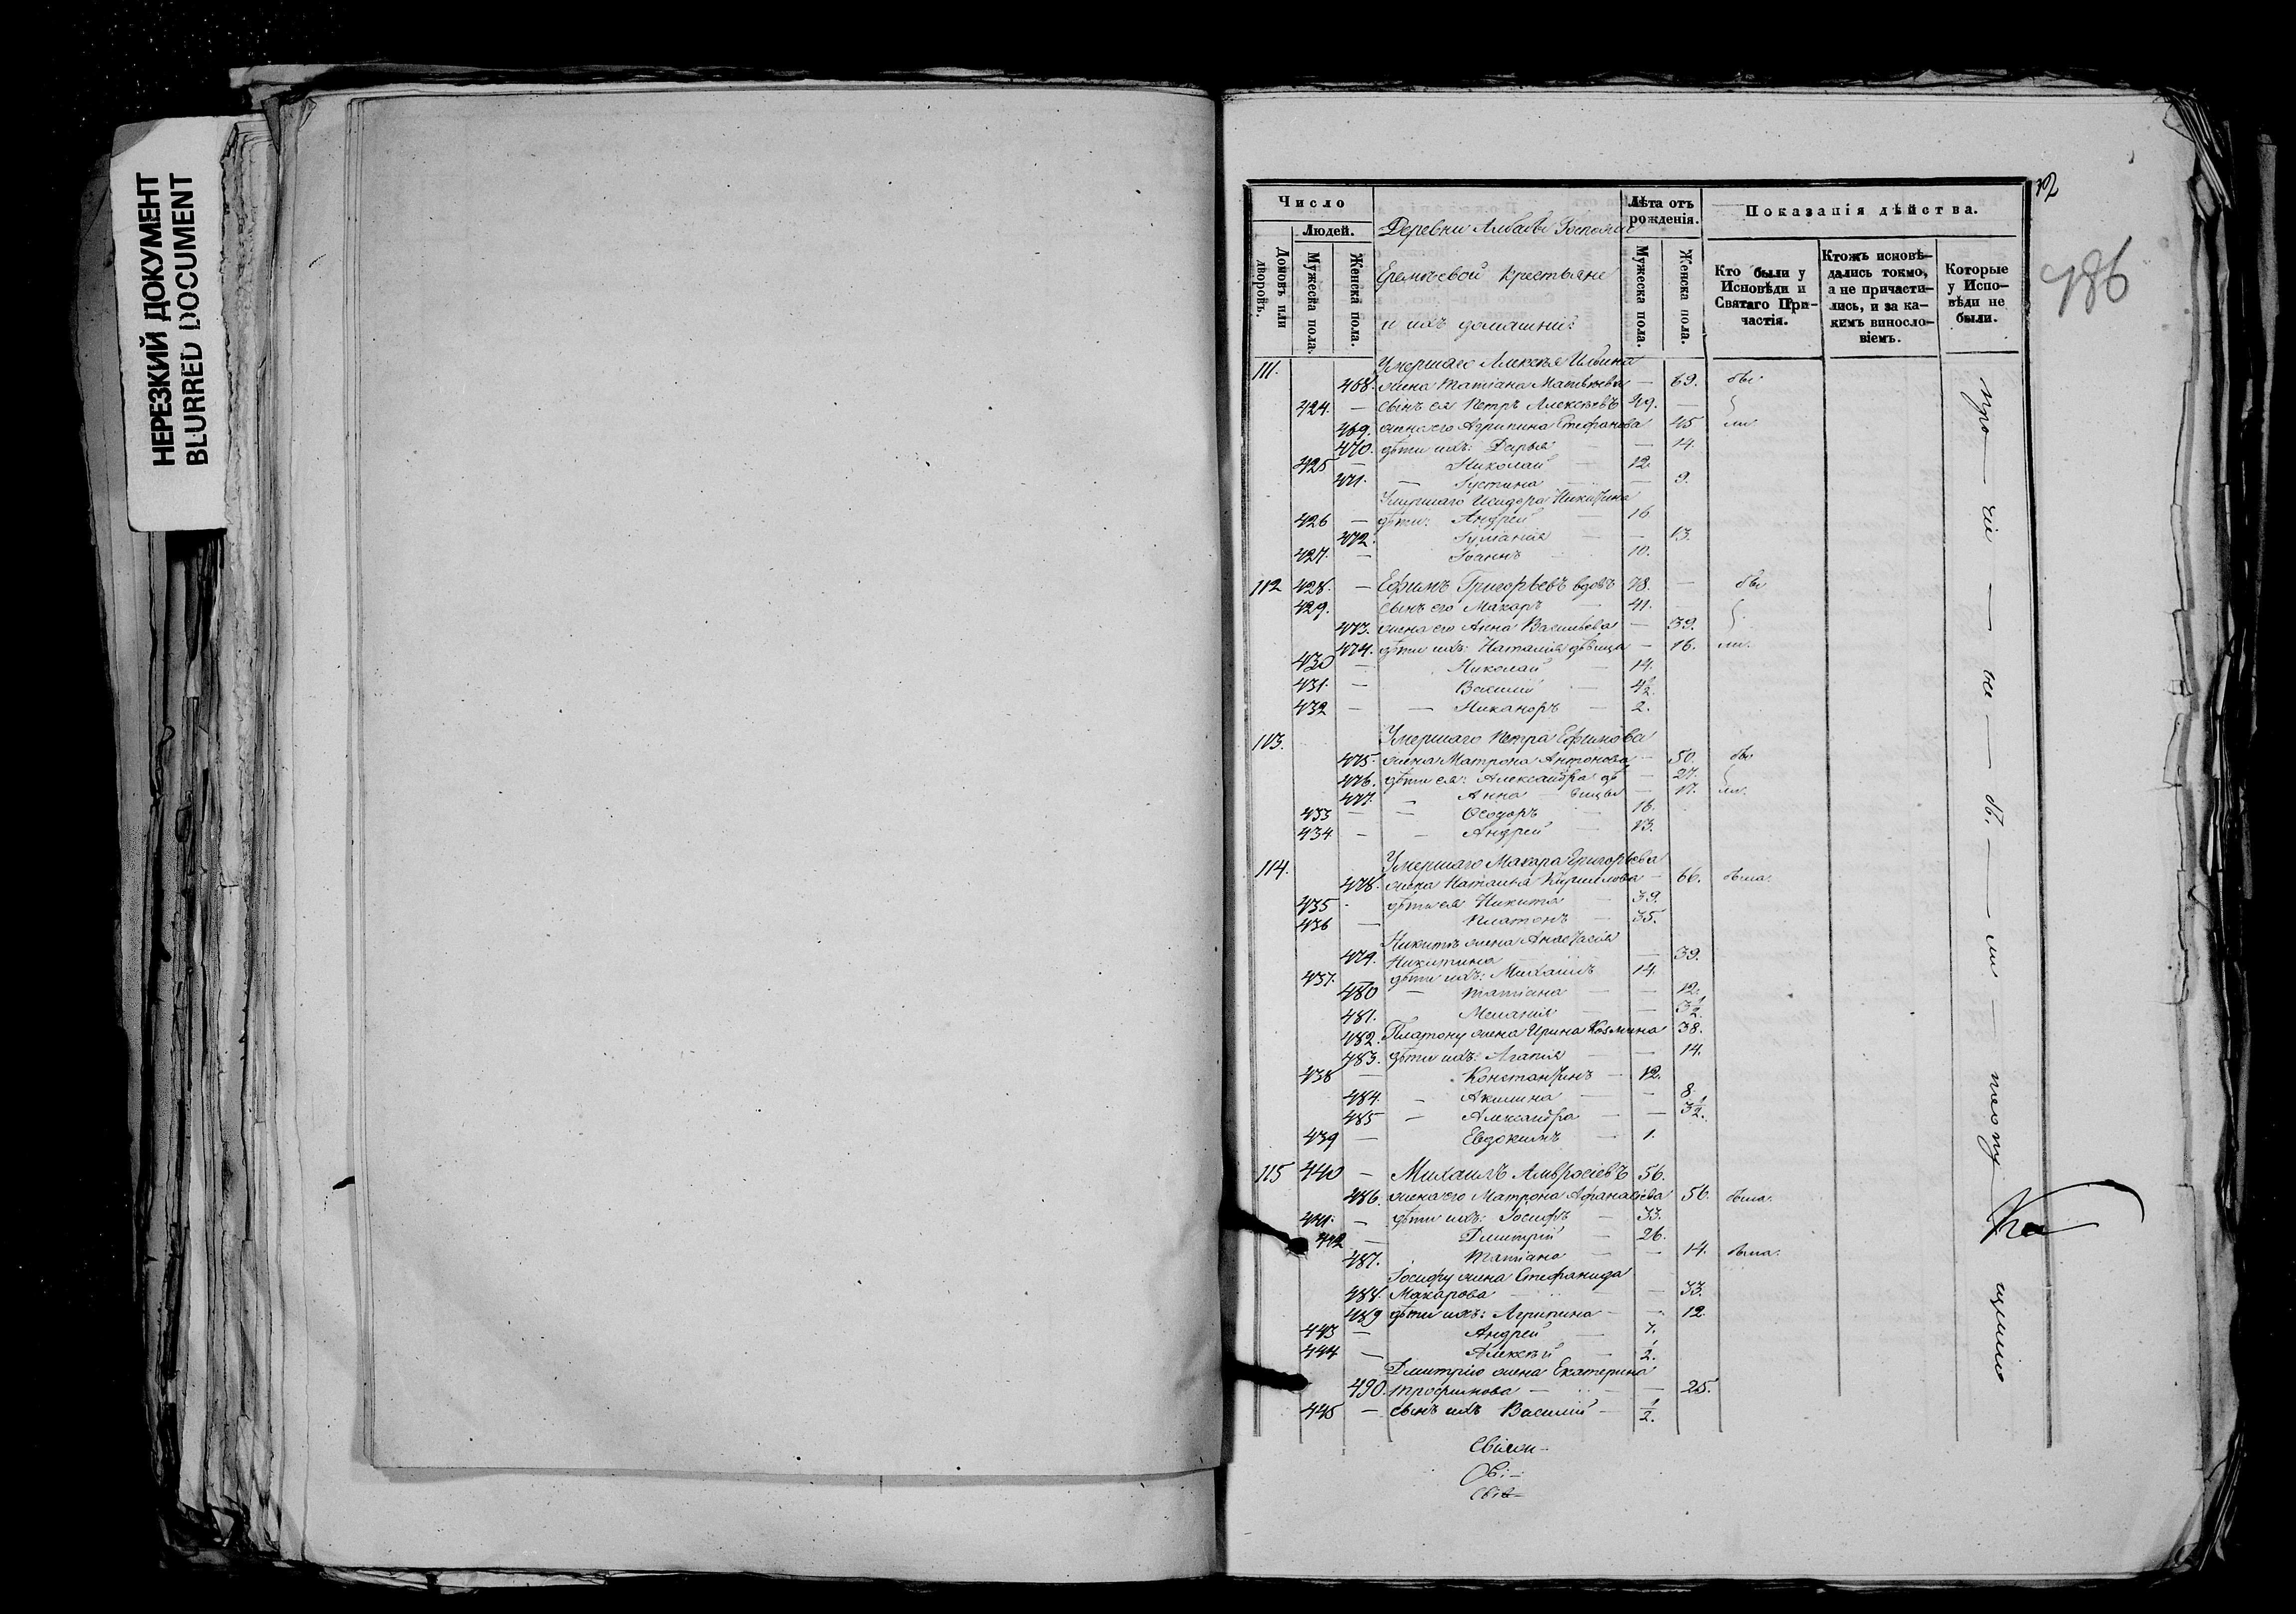 НЕРЕЗКИЙ ДОКУМЕНТ
BLURRED DOCUMENT
12
486
Число
Людей.
Домовъ или дворовъ.
Мужеска пола.
Женска пола.
Деревни Госпожи
Еремѣевой крестьяне
и ихъ домашніе
Лѣта отъ рожденія.
Мужеска пола.
Женска пола.
Показанія дѣйства.
Кто были у Исповѣди и Святаго Причастія.
Ктожъ исповѣдались токмо, а не причастились, и за какимъ винословіемъ.
Которые у Исповѣди не были.
111. Умершаго Алексѣя Ильина
468. жена Татіана Матвѣева — 69. бы
424. — сынъ ея Петръ Алексѣевъ 49. —
469. жена его Агрипина Стефанова 45 ли
470. дѣти ихъ: Дарья — 14.
425 — Николай — 12.
471. — Іустина — 9.
Умершаго Исидора Никитина
426 — дѣти: Андрей 16
472. — 13.
427. — Іоаннъ 10.
112 428. — Ефимъ Григорьевъ вдовъ 78. — бы
429. сынъ его Макаръ — 41. —
473. жена его Анна Васильева — 39.
474. дѣти ихъ: Наталія дѣвица — 16. ли.
430 — Николай — 14.
431. — Василій — 4½.
432 — — Никаноръ — 2.
113. Умершаго Петра Ефимова
475. жена Матрона Антонова — 50. бы
476. дѣти ея: Александра дѣ — 27.
477. — Анна вицы — 17. ли.
433 — — Ѳеодоръ — 16.
434 — — Андрей — 13.
114. Умершаго Макара Григорьева
478. жена Наталья Кириллова — 66. была.
435 дѣти ея Никита — 39.
436 — Платонъ — 35.
Никиты жена Анастасія
479. Никитина — 39.
437. дѣти ихъ: Михаилъ 14.
480 — Татіана — — 12.
481. Меланія — — 3½
482. Платону жена Ирина Козмина 38.
483. дѣти ихъ: Агапія — — 14.
438 — Константинъ — 12.
484. — Акилина — — 8.
485 — Александра — — 3½.
439 — Евдокимъ — 1.
115 440 — Михаилъ Амвросіевъ 56.
486. жена его Матрона Афанасіева 56. была.
441. — дѣти ихъ: Іосифъ — 33.
442 — Дмитрій — 26.
487. Татіана — — 14. была.
Іосифу жена Стефанида
488. Макарова — — 33.
489 дѣти ихъ: Агрипина — — 12.
443 — Андрей — 7.
444 — Алексѣй — ½.
Дмитрію жена Екатерина
490. Трофимова — — 25.
445 — сынъ ихъ Василій — ½.
про — чіи — не — бы — ли — по